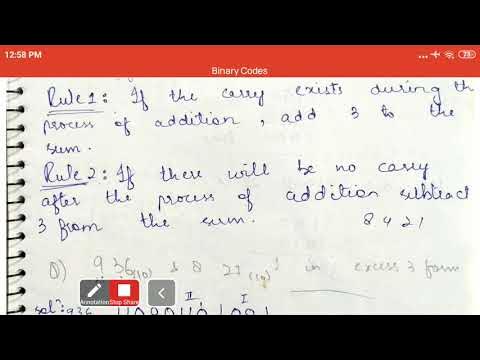 12:58 PM
73
Binary Codes
Rule 1: If the carry exists during th
process of addition, add 3 to the
sum.
Rule 2: If there will be no carry
after the process of addition subtract
3 from the sum. 8 4 2 1
Q) 936(10) & 8 27(10) in excess 3 form
Annotation Stop Share
II I
soln: 936 110001101001